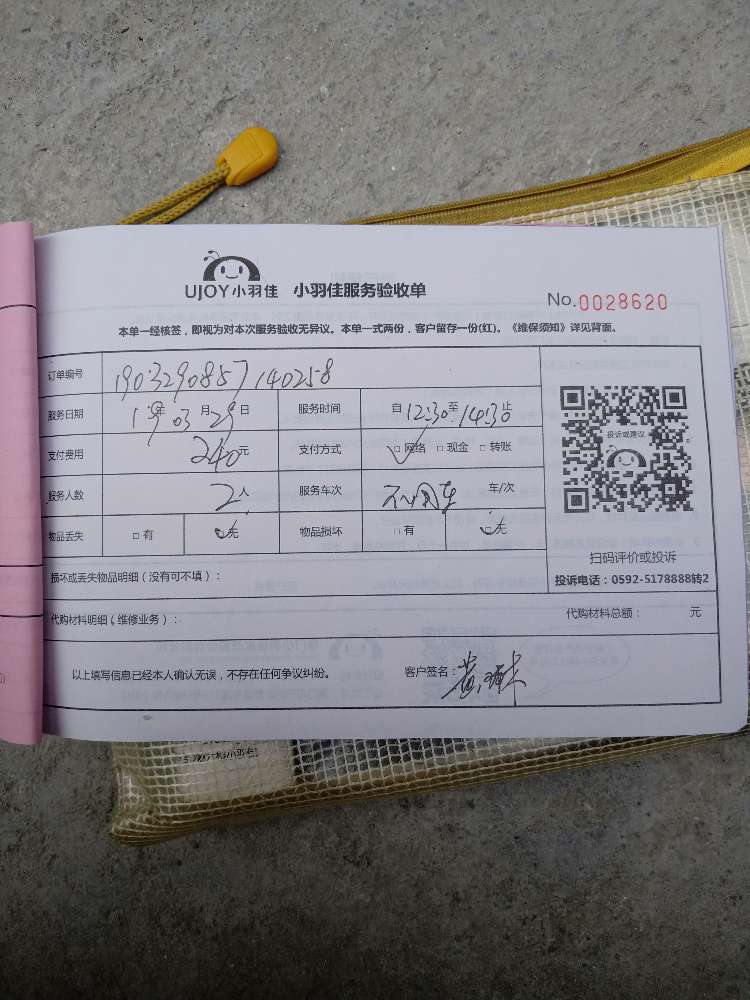 UJOY小羽佳 小羽佳服务验收单
No.0028620
本单一经核签，即视为对本次服务验收无异议。本单一式两份，客户留存一份(红)。《维保须知》详见背面。
订单编号 1903290857140258
服务日期 19年03月29日 服务时间 自12:30至14:30止
支付费用 240元 支付方式 □网络 □现金 □转账
服务人数 2人 服务车次 不用车 车/次
物品丢失 □有 □无 物品损坏 □有 □无
投诉或建议
扫码评价或投诉
投诉电话：0592-5178888转2
损坏或丢失物品明细（没有可不填）：
代购材料明细（维修业务）： 代购材料总额： 元
以上填写信息已经本人确认无误，不存在任何争议纠纷。 客户签名：黄